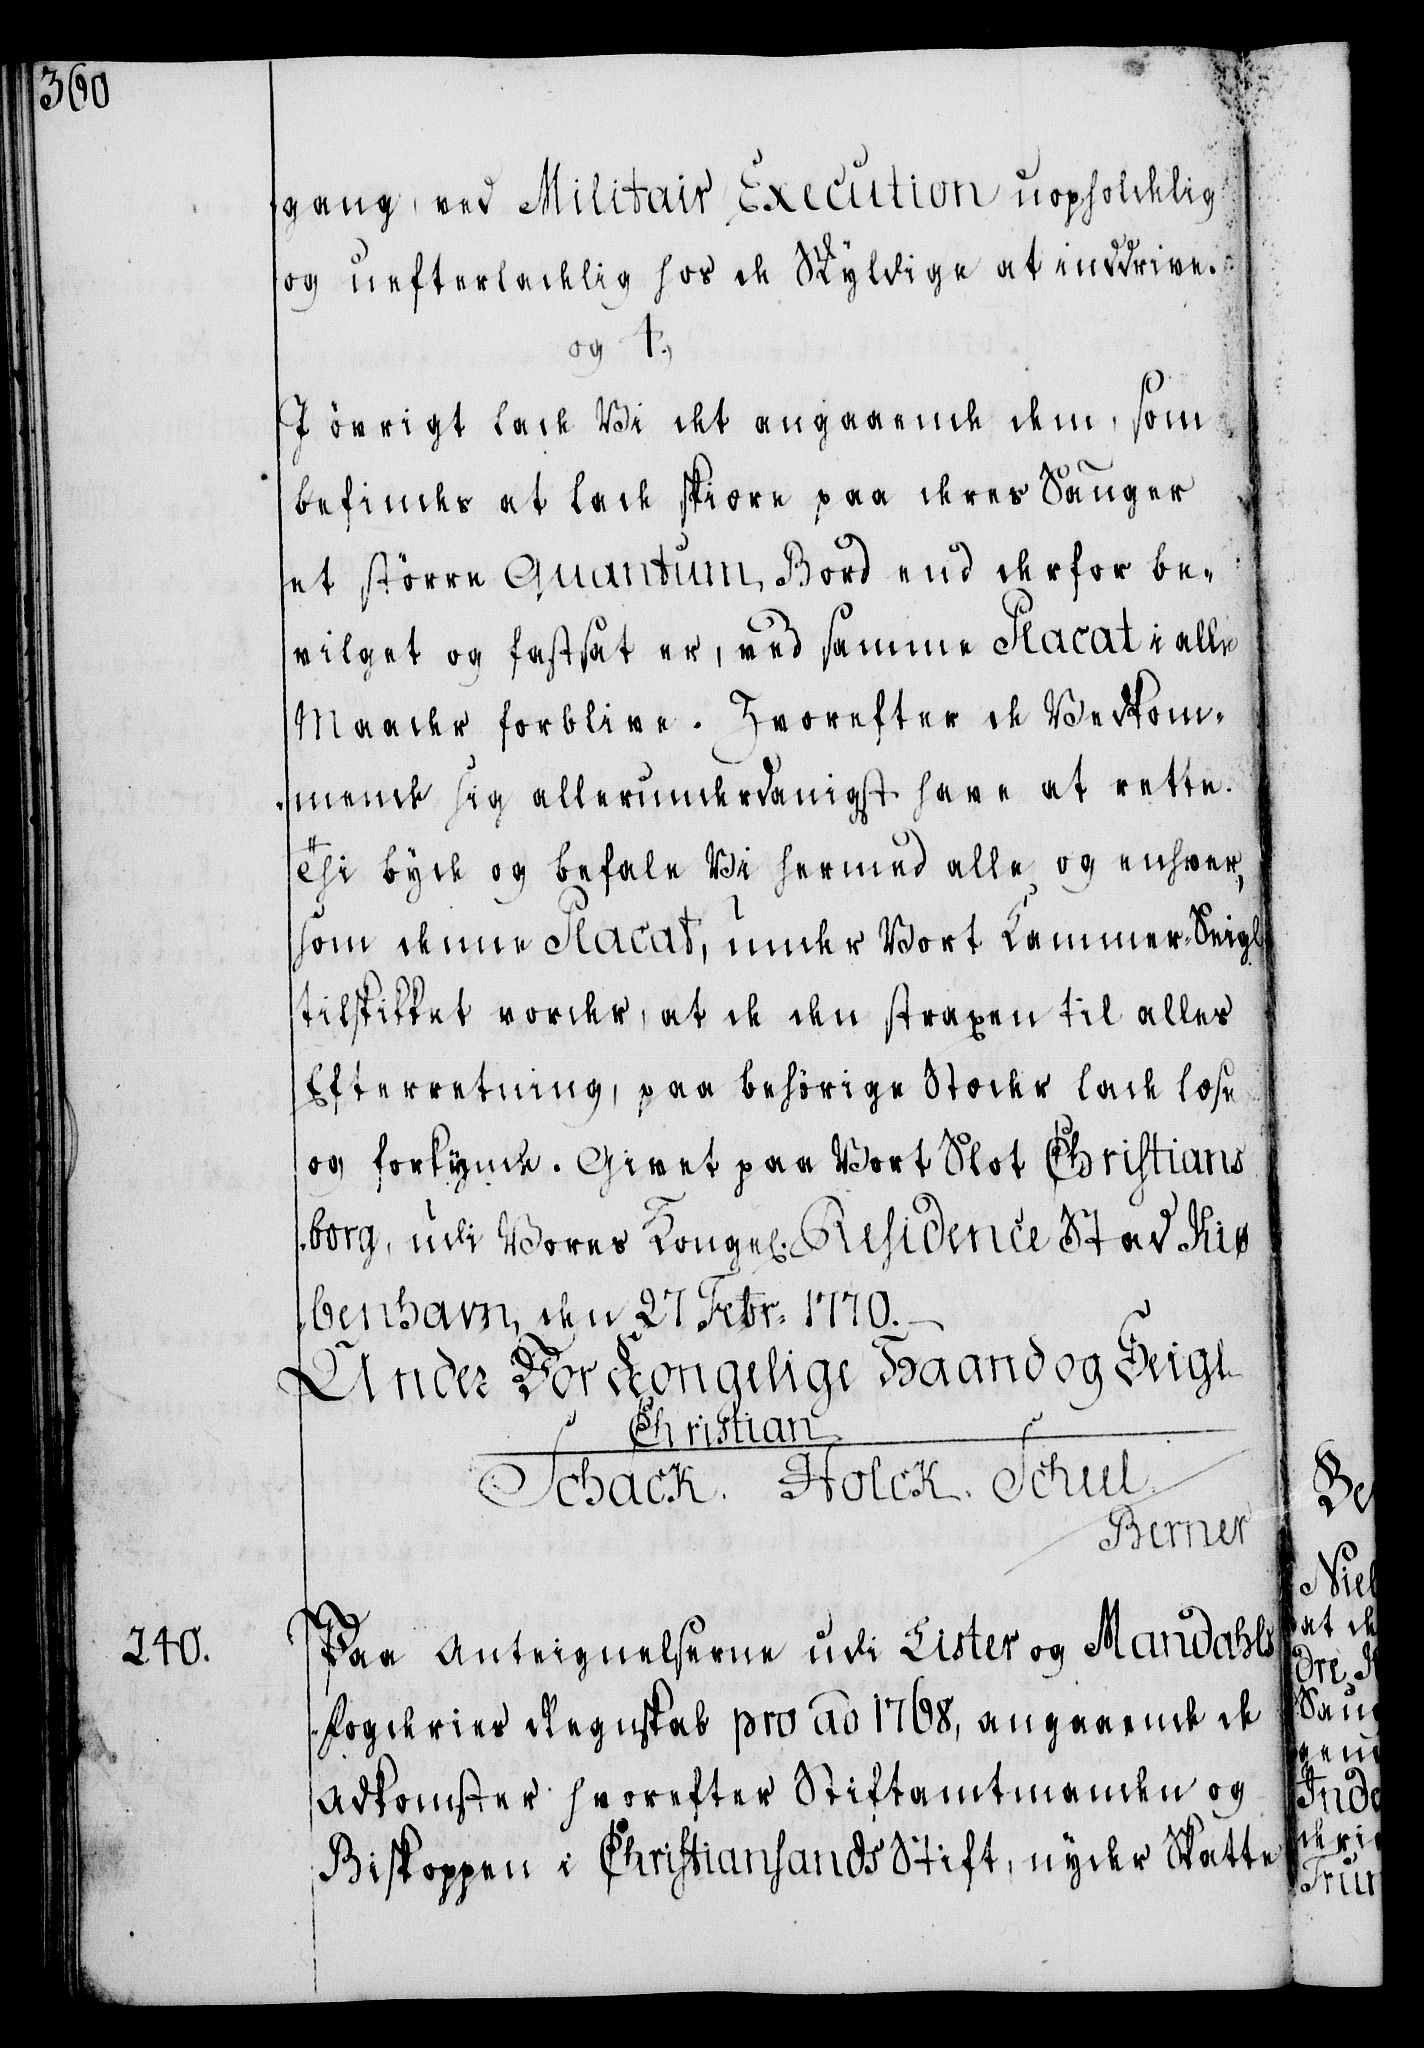 360
gang, ved Militair Execution uopholdelig
og uefterladelig hos de Skyldige at inddrive.
og 4.,
I övrigt lade Vi det angaaende dem, som
befindes at lade skiære paa deres Sauger
et större Quantum, Bord end derfor be-
vilget og fastsat er, ved samme Placat i alle
Maader forblive. Hvorefter de Vedkom-
mende sig allerunderdanigst have at rette.
Thi byde og befale Vi hermed alle og enhver,
som denne Placat, under Vort Kammer-Seigl
tilskikket vorder, at de den straxen til alles
Efterretning, paa behörige Stæder lade læse
og forkynde. Givet paa Vort Slot Christians
borg, udi Vores Kongel: Residence Stad Kiø
benhavn, den 27 Febr: 1770.
Under Vor Kongelige Haand og Seigl
Christian
Schack. Holck. Schul.
Berner
240.
Paa Anteignelserne udi Lister og Mandahls
fogderies Regnskab pro ao 1768, angaaende de
Adkomster hvorefter Stiftamtmanden og
Biskoppen i Christiansands Stift, nyder Skatte